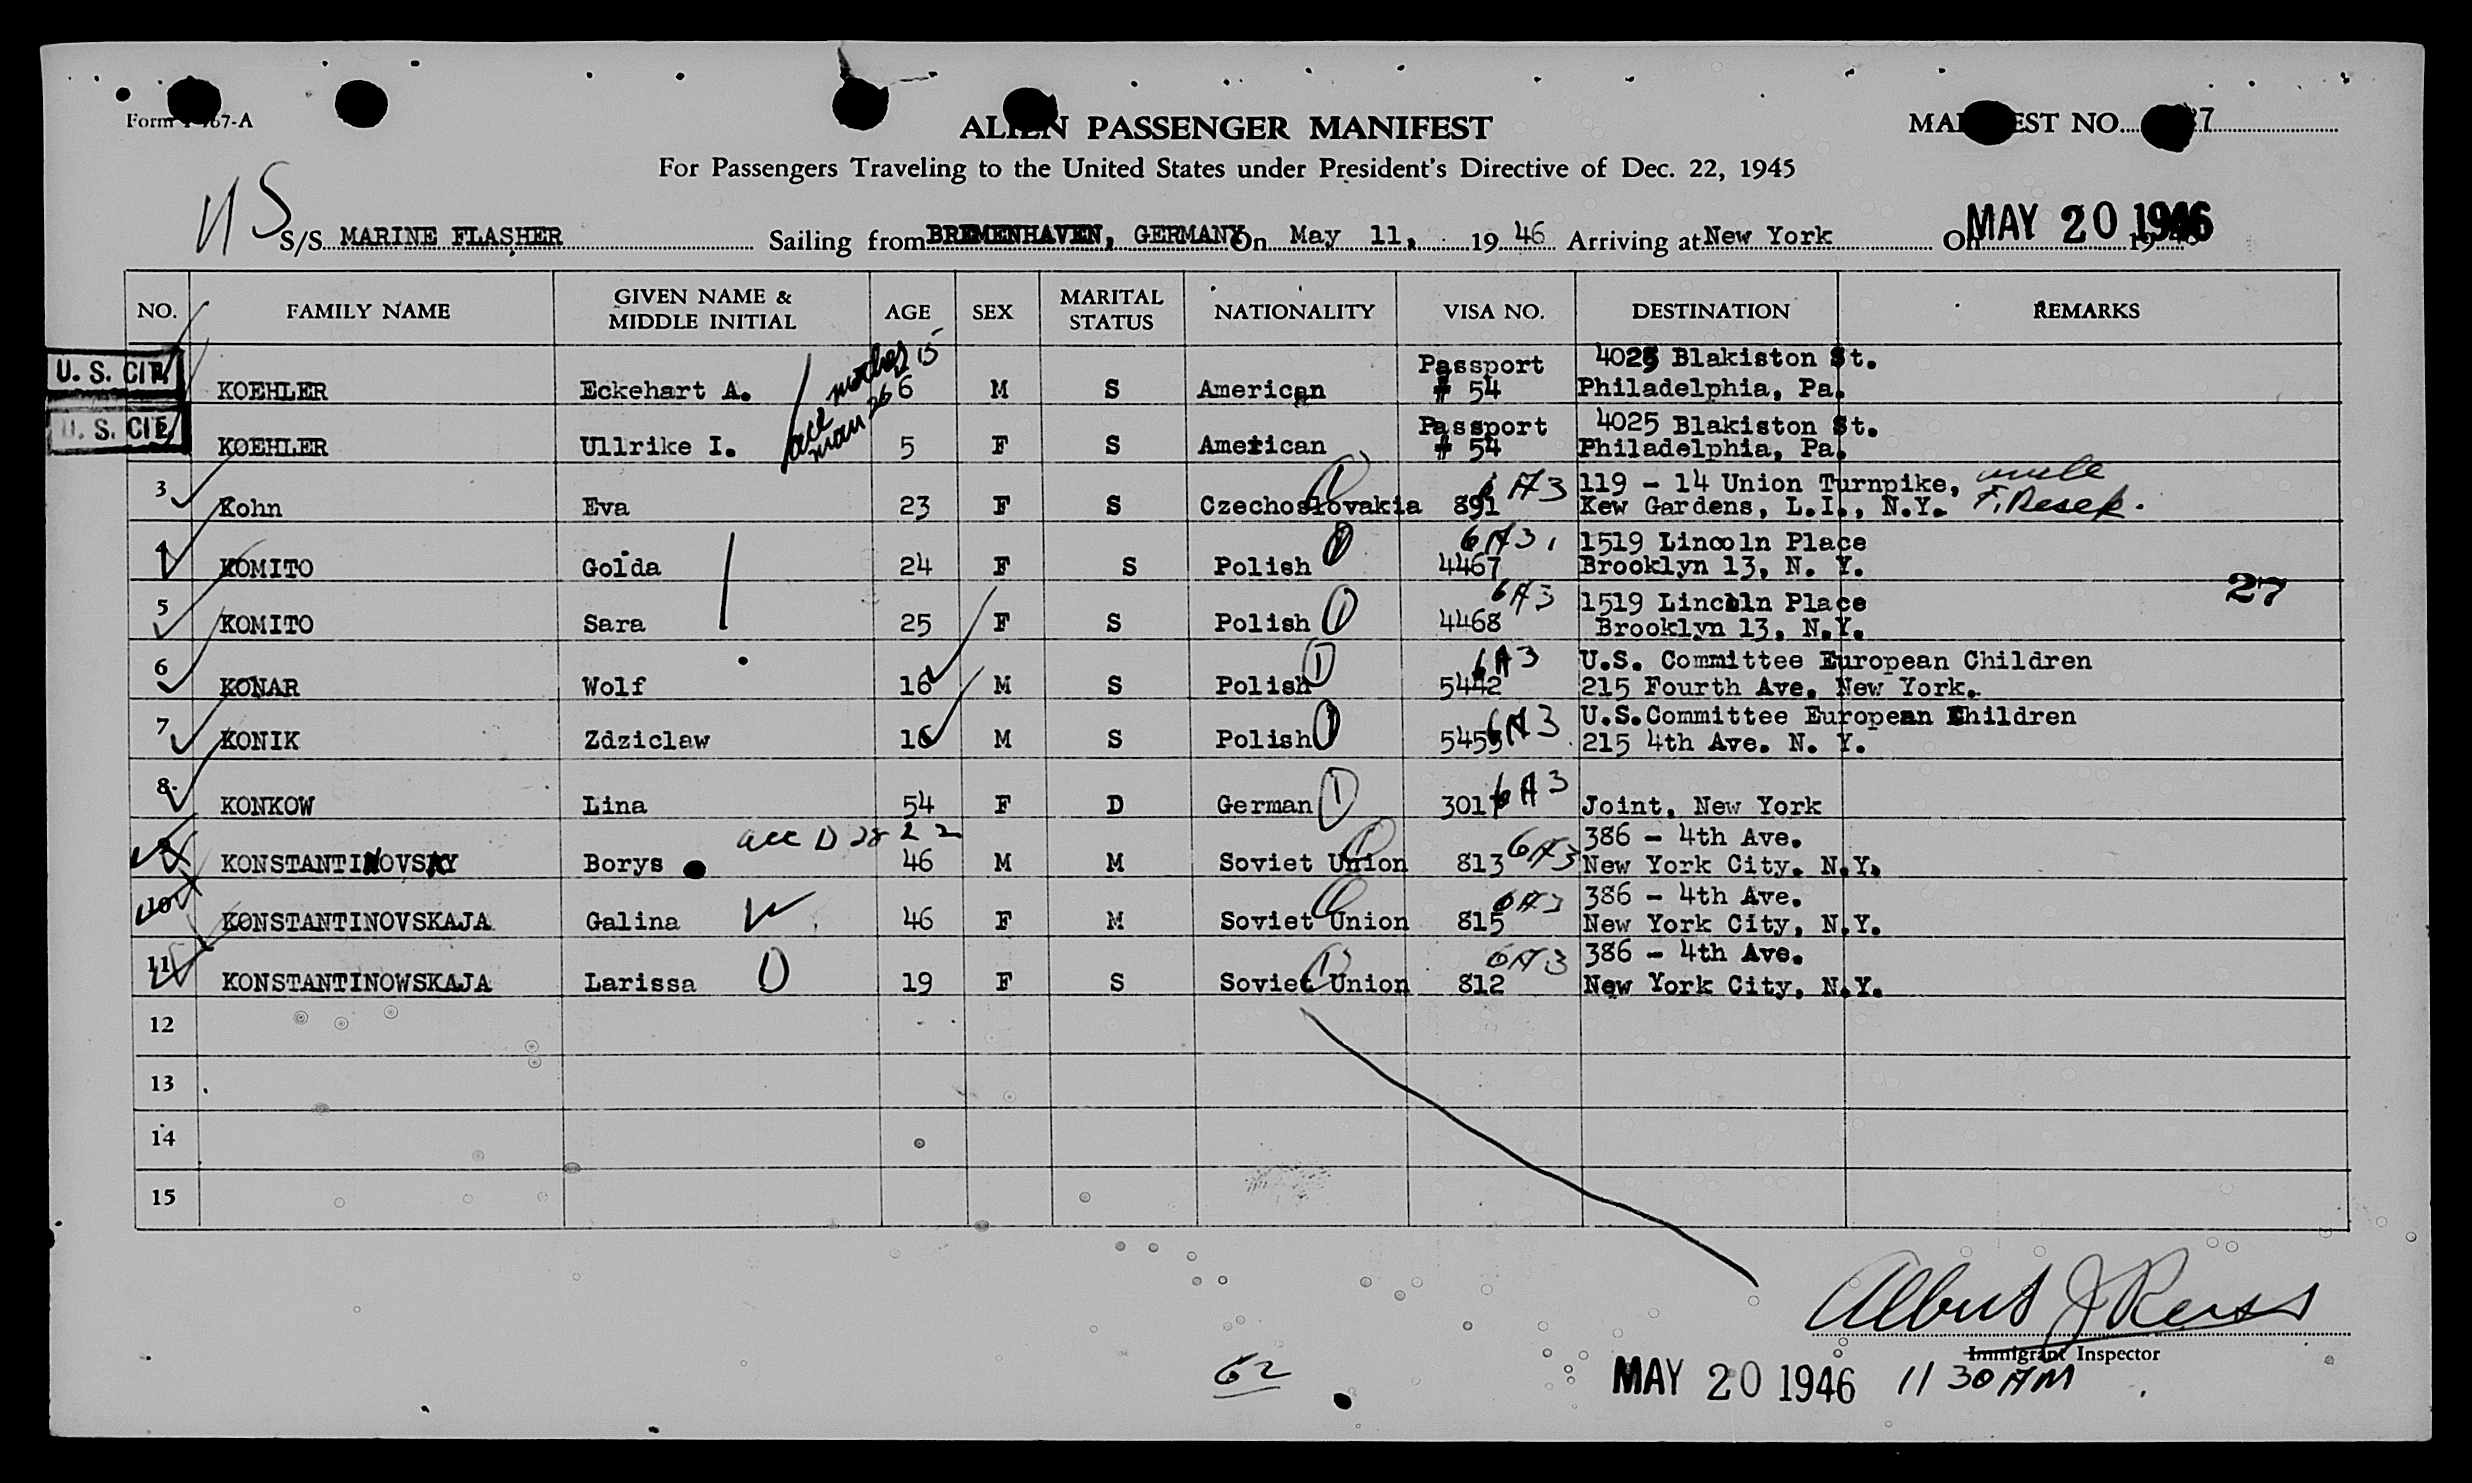 Form I-467-A
ALIEN PASSENGER MANIFEST
MANIFEST NO. 27
For Passengers Traveling to the United States under President's Directive of Dec. 22, 1945
US
S/S MARINE FLASHER Sailing from BREMENHAVEN, GERMANY On May 11, 19 46 Arriving at New York On MAY 20 1946
NO. FAMILY NAME GIVEN NAME & MIDDLE INITIAL AGE SEX MARITAL STATUS NATIONALITY VISA NO. DESTINATION REMARKS
U. S. CIT. KOEHLER Eckehart A. 6 M S American Passport # 54 4025 Blakiston St. Philadelphia, Pa.
acc mother 15
man 26
U. S. CIT. KOEHLER Ullrike I. 5 F S American Passport # 54 4025 Blakiston St. Philadelphia, Pa.
3 Kohn Eva 23 F S Czechoslovakia 891 6A3 119 - 14 Union Turnpike, Kew Gardens, L.I., N.Y. uncle F. Resek.
4 KOMITO Golda 24 F S Polish 4467 6A3 1519 Lincoln Place Brooklyn 13, N. Y.
5 KOMITO Sara 25 F S Polish 4468 6A3 1519 Lincoln Place Brooklyn 13, N.Y. 27
6 KONAR Wolf 16 M S Polish 5442 6A3 U.S. Committee European Children 215 Fourth Ave. New York.
7 KONIK Zdziclaw 16 M S Polish 5455 6A3 U.S.Committee European Children 215 4th Ave. N. Y.
8. KONKOW Lina 54 F D German 301 6A3 Joint, New York
acc D 28 22
9 KONSTANTINOVSKY Borys 46 M M Soviet Union 813 6A3 386 - 4th Ave. New York City, N.Y.
10 KONSTANTINOVSKAJA Galina 46 F M Soviet Union 815 6A3 386 - 4th Ave. New York City, N.Y.
11 KONSTANTINOWSKAJA Larissa 19 F S Soviet Union 812 6A3 386 - 4th Ave. New York City, N.Y.
12
13
14
15
Albert J Reiss
Immigrant Inspector
62
MAY 20 1946 11 30 AM